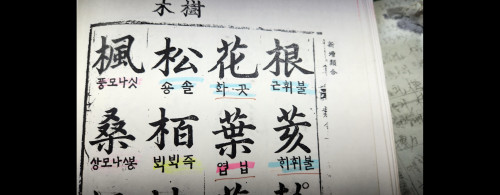 樹木
新增類合
根 花 松 楓
불휘근 곳화 솔송 싯나모풍
荄 葉 栢 桑
불휘히 닙엽 즉빅빅 뽕나모상